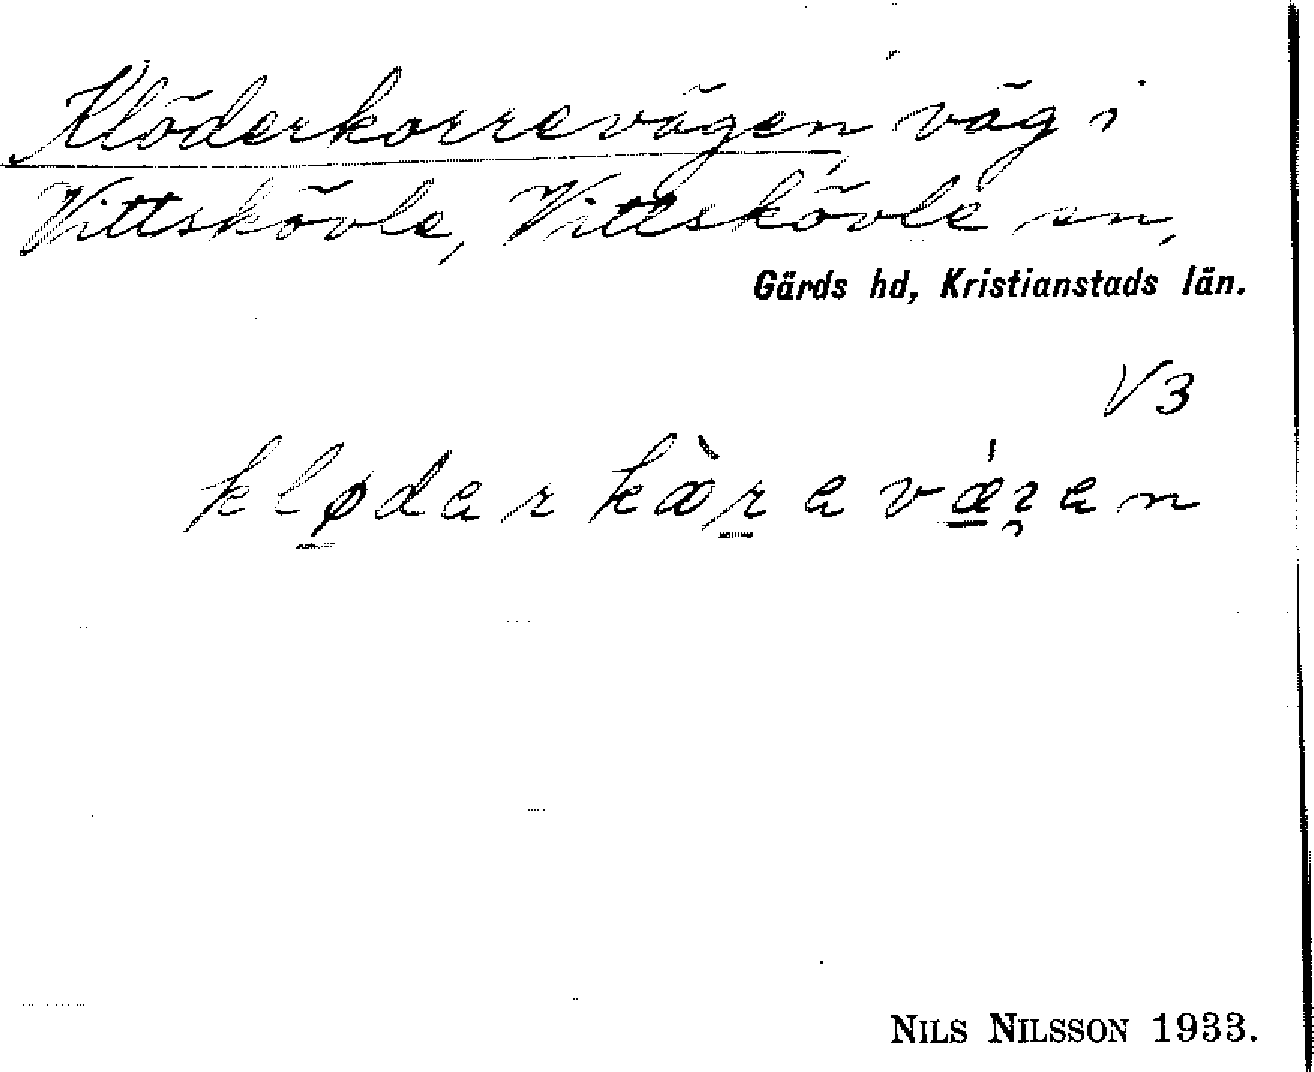 Klöderkorrevägen väg i
Vittskövle, Vittskövle sn,
Gärds hd, Kristianstads län.
V3
kløderkàrevǽgen
NILS NILSSON 1933.